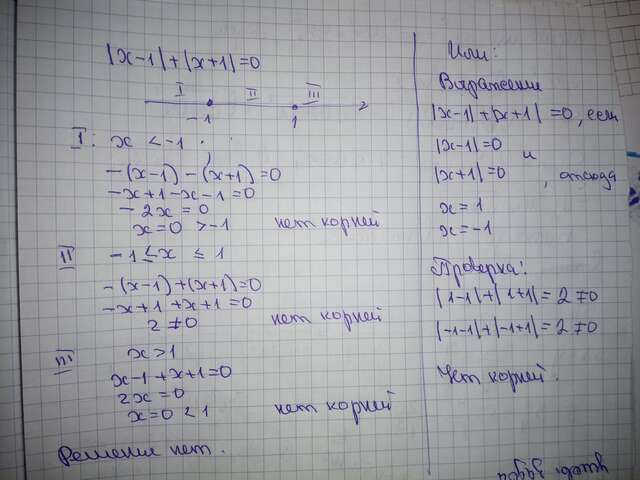 |x-1|+|x+1|=0
I II III
-1 1 x
I: x < -1.
-(x-1)-(x+1)=0
-x+1-x-1=0
-2x=0
x=0 >-1 нет корней
II -1≤x≤1
-(x-1)+(x+1)=0
-x+1+x+1=0
2≠0 нет корней
III x>1
x-1+x+1=0
2x=0
x=0<1 нет корней
Решение нет.
Или:
Выражение
|x-1|+|x+1|=0, если
|x-1|=0 и
|x+1|=0, отсюда
x=1
x=-1
Проверка:
|1-1|+|1+1|=2≠0
|-1-1|+|-1+1|=2≠0
Нет корней.